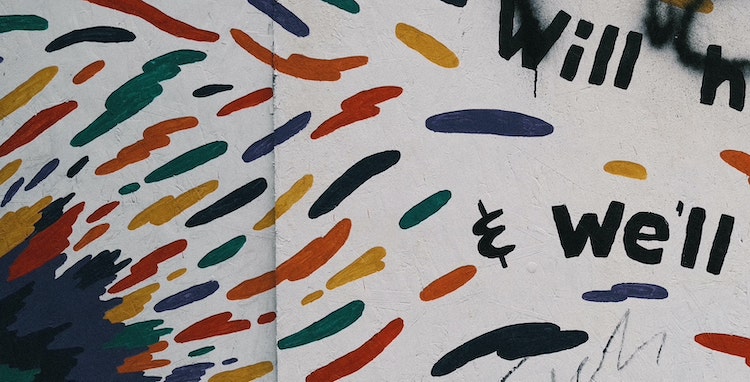 Will
& we'll